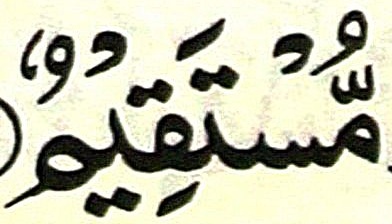 مُّسْتَقِيْمٌ